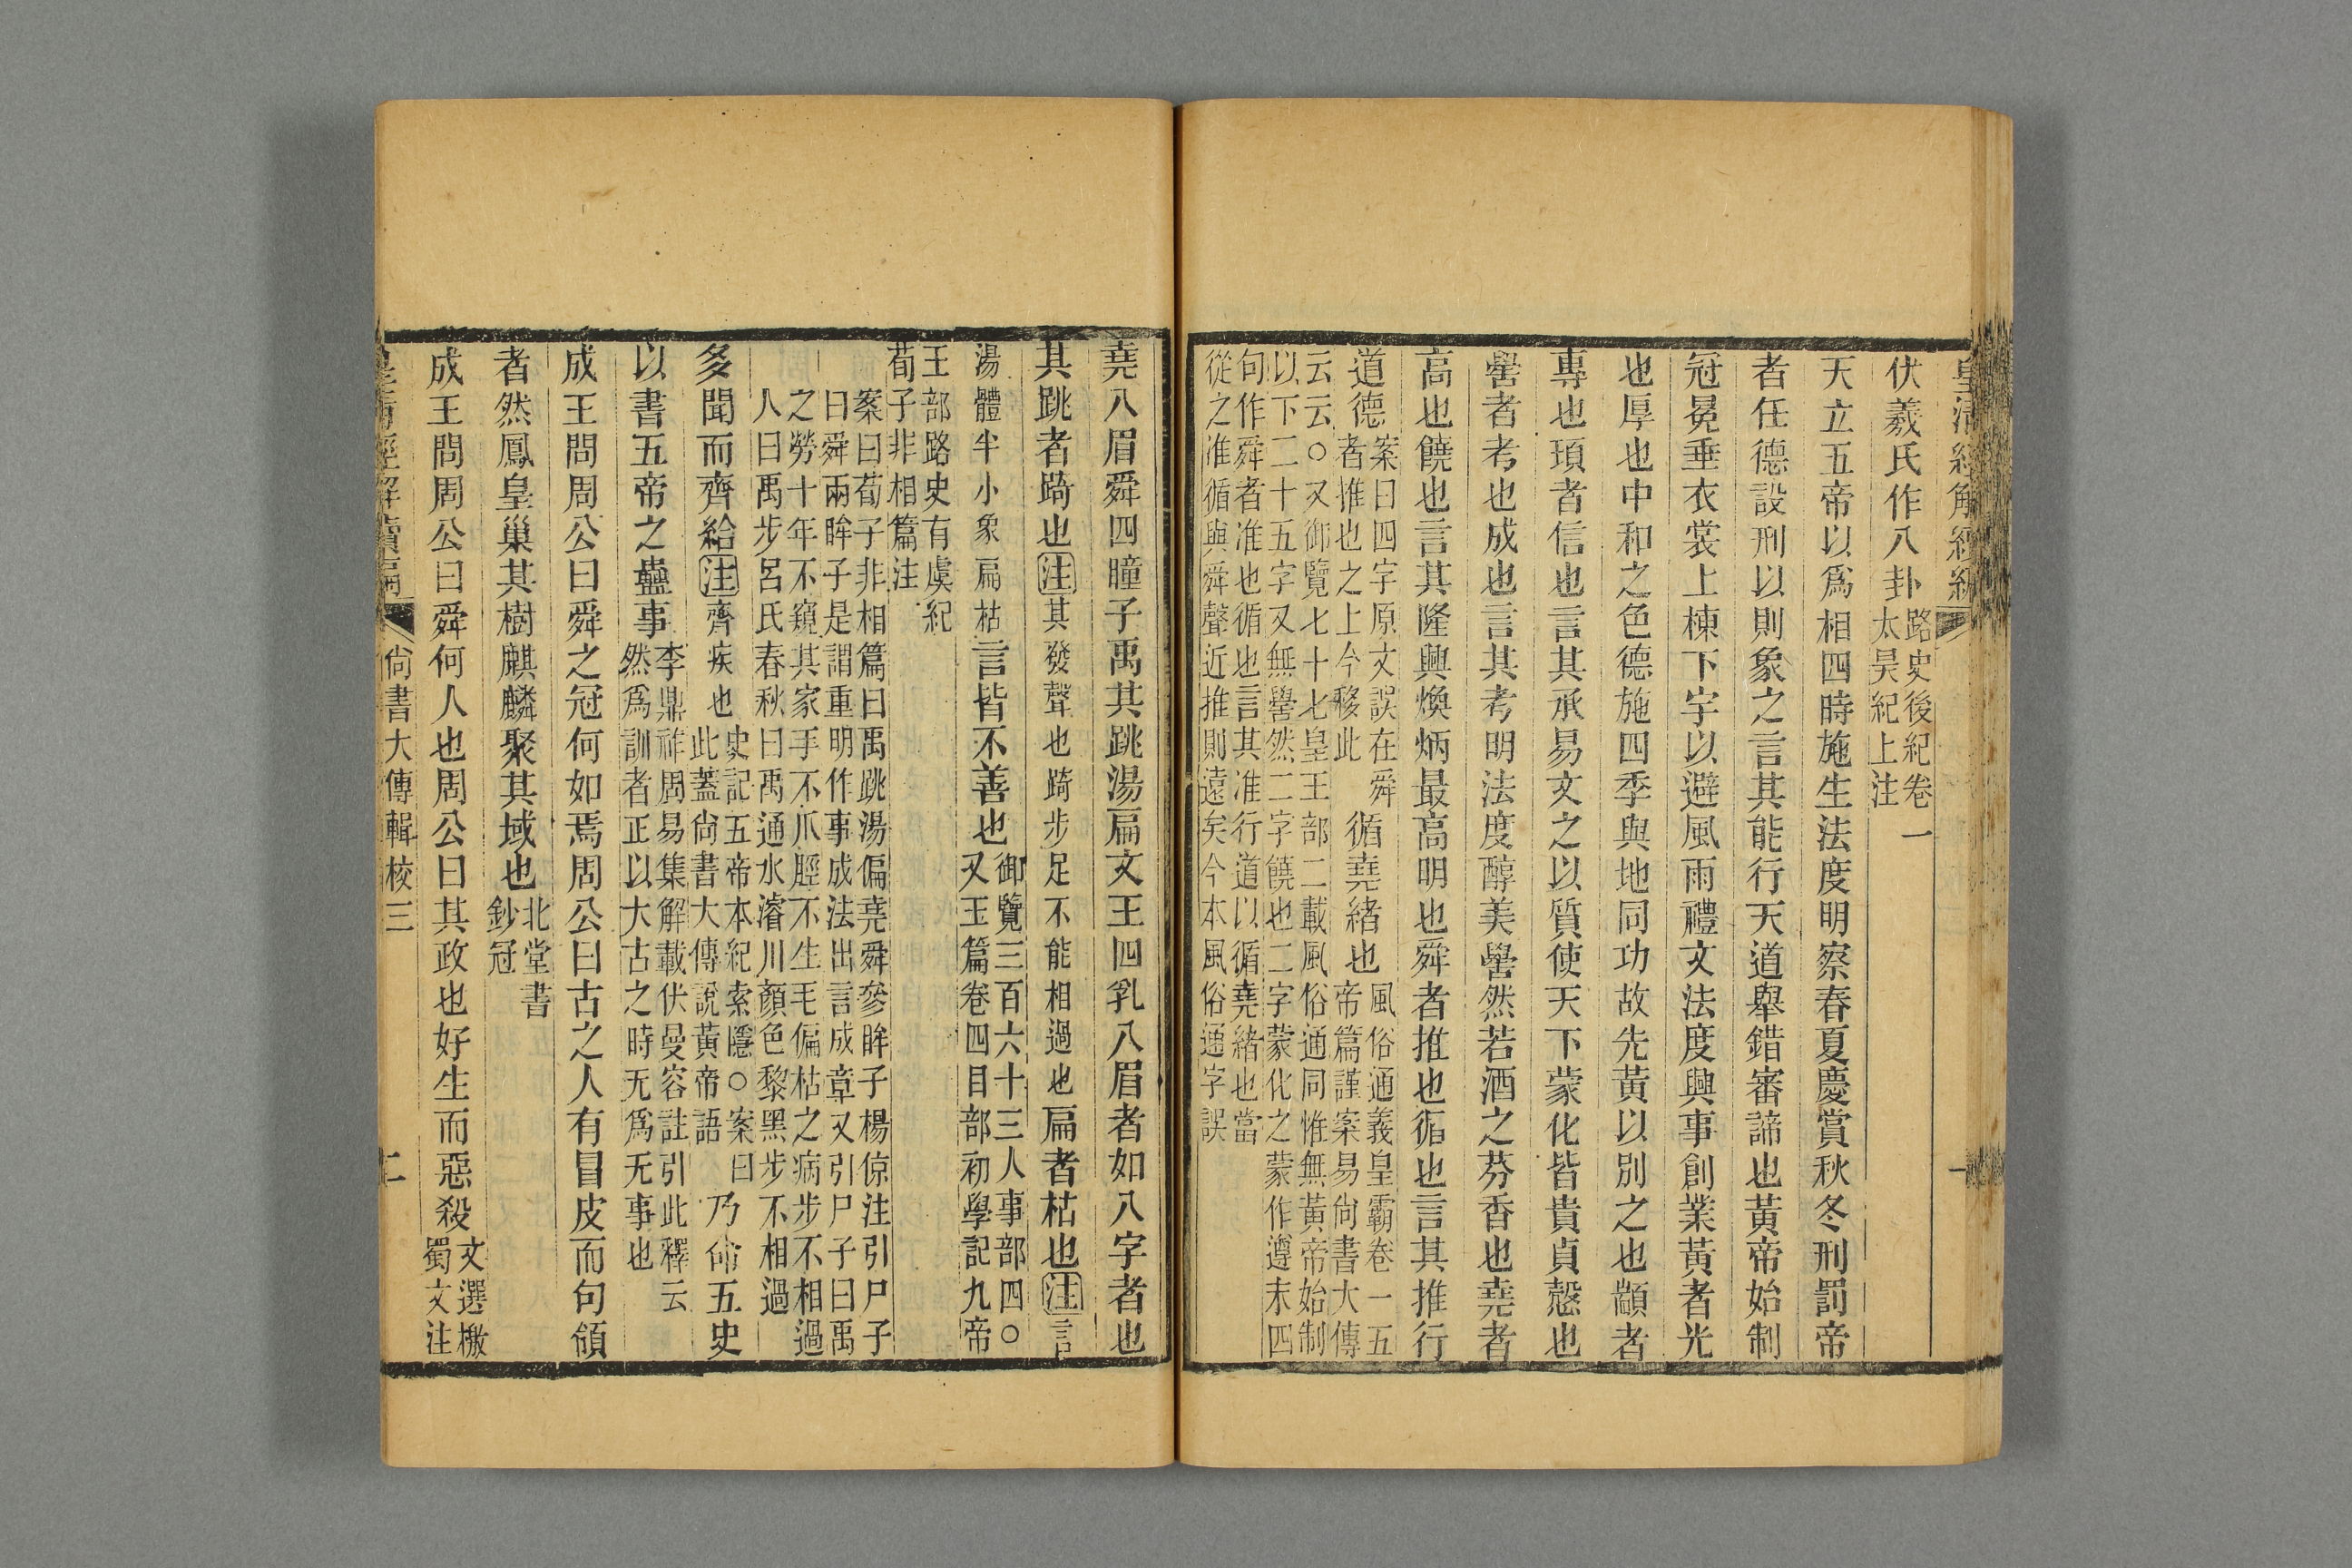 皇清經解續編 一
伏羲氏作八卦路史後紀卷一
太昊紀上注
天立五帝以爲相四時施生法度明察春夏慶賞秋冬刑罰帝
者任德設刑以則象之言其能行天道舉錯審諦也黃帝始制
冠冕垂衣裳上棟下宇以避風雨禮文法度興事創業黃者光
也厚也中和之色德施四季與地同功故先黃以別之也顓者
專也頊者信也言其承易文之以質使天下蒙化皆貴貞慤也
嚳者考也成也言其考明法度醇美嚳然若酒之芬香也堯者
高也饒也言其隆興煥炳最高明也舜者推也循也言其推行
道德案曰四字原文誤在舜
者推也之上今移此
循堯緒也風俗通義皇霸卷一五
帝篇謹案易尚書大傳
云云○又御覽七十七皇王部二載風俗通同惟無黃帝始制
以下二十五字又無嚳然二字饒也二字蒙化之蒙作遵末四
句作舜者准也循也言其准行道以循堯緒也當
從之准循與舜聲近推則遠矣今本風俗通字誤
堯八眉舜四瞳子禹其跳湯扁文王四乳八眉者如八字者也
其跳者踦也注其發聲也踦步足不能相過也扁者枯也注言
湯體半小象扁枯言皆不善也御覽三百六十三人事部四○
又玉篇卷四目部初學記九帝
王部路史有虞紀
荀子非相篇注
案曰荀子非相篇曰禹跳湯偏堯舜參眸子楊倞注引尸子
曰舜兩眸子是謂重明作事成法出言成章又引尸子曰禹
之勞十年不窺其家手不爪脛不生毛偏枯之病步不相過
人曰禹步呂氏春秋曰禹通水濬川顏色黎黑步不相過
多聞而齊給注齊疾也史記五帝本紀索隱○案曰
此蓋尚書大傳說黃帝語
乃命五史
以書五帝之蠱事李鼎祚周易集解載伏曼容註引此釋云
然爲訓者正以大古之時无爲无事也
成王問周公曰舜之冠何如焉周公曰古之人有冒皮而句領
者然鳳皇巢其樹麒麟聚其域也北堂書
鈔冠
成王問周公曰舜何人也周公曰其政也好生而惡殺文選檄
蜀文注
皇清經解續編 尚書大傳輯校三 二